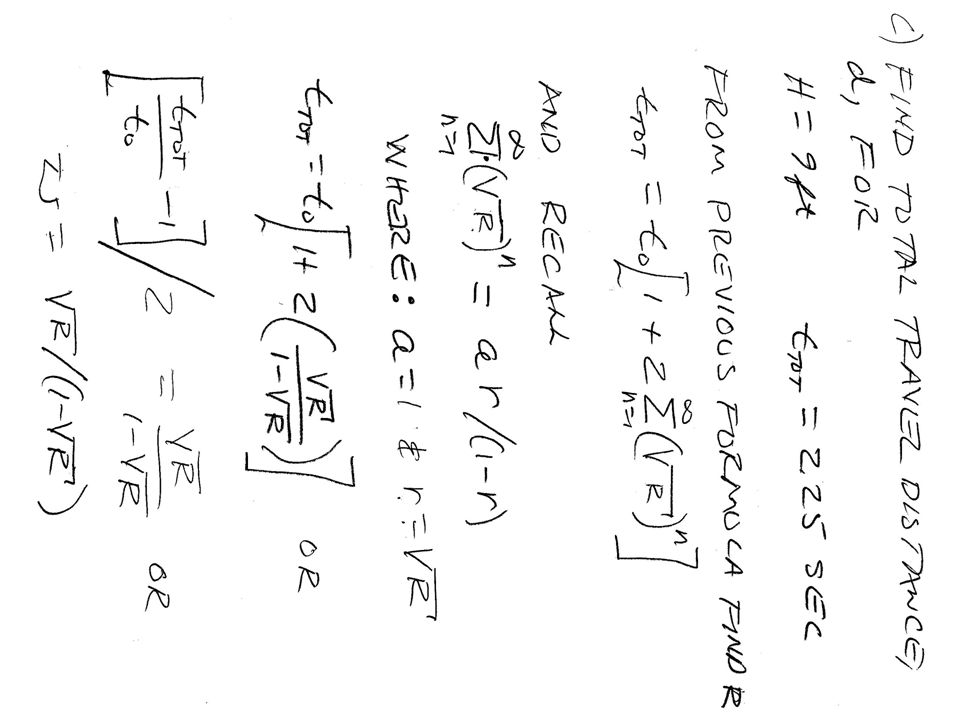 C) FIND TOTAL TRAVEL DISTANCE,
d, FOR
H = 9 ft    t_TOT = 2.25 SEC
FROM PREVIOUS FORMULA FIND R
t_TOT = t_0 [1 + 2 ∑_{n=1}^{∞} (√R)^n]
AND RECALL
∑_{n=1}^{∞} (√R)^n = ar/(1-r)
WHERE: a = 1 & r = √R
t_TOT = t_0 [1 + 2 (√R / (1-√R))]    OR
[t_TOT / t_0 - 1] / 2 = √R / (1-√R)    OR
= √R/(1-√R)